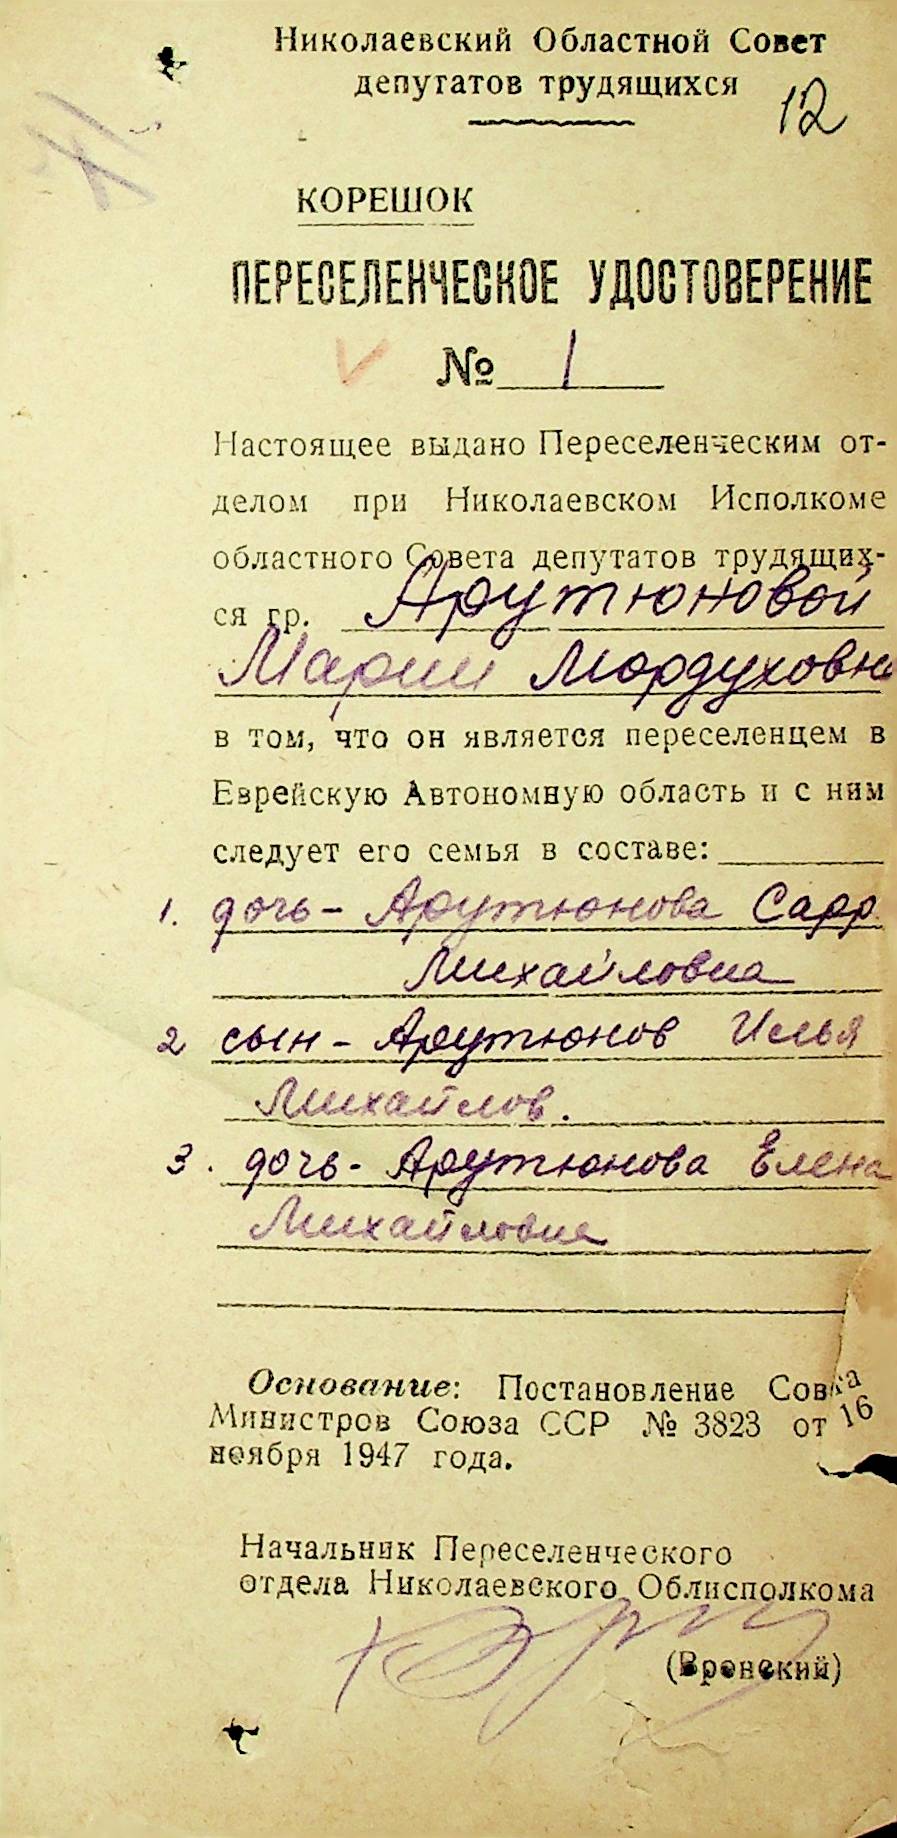 Николаевский Областной Совет
депутатов трудящихся
12
КОРЕШОК
ПЕРЕСЕЛЕНЧЕСКОЕ УДОСТОВЕРЕНИЕ
№ 1
Настоящее выдано Переселенческим от-
делом при Николаевском Исполкоме
областного Совета депутатов трудящих-
ся гр. Арутюновой
Марии Мордуховн
в том, что он является переселенцем в
Еврейскую Автономную область и с ним
следует его семья в составе:
1. дочь - Арутюнова Сарр
Михайловна
2 сын - Арутюнов Илья
Михайлов.
3. дочь - Арутюнова Елена
Михайловна
Основание: Постановление Совета
Министров Союза ССР № 3823 от 16
ноября 1947 года.
Начальник Переселенческого
отдела Николаевского Облисполкома
(Вронский)